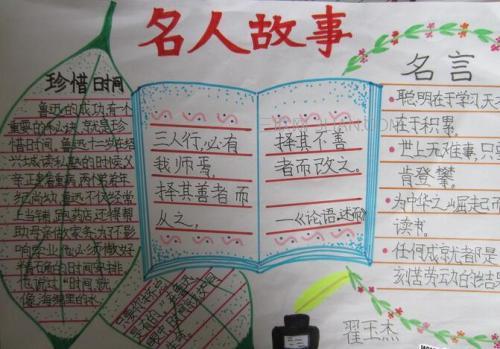 名人故事
珍惜时间
鲁迅的成功,有一个
重要的秘诀,就是珍
惜时间。鲁迅十二岁在绍
兴城读私塾的时候,父
亲正患着重病,两个弟弟
年纪尚幼,鲁迅不仅经常
上当铺,跑药店,还得帮
助母亲做家务;为不影
响学业,他必须做好
精确的时间安排。
像海绵里的水
三人行,必有
我师焉。
择其善者而
从之,
择其不善
者而改之。
——《论语·述而》
名言
聪明在于学习,天
在于积累。
世上无难事,只要
肯登攀。
为中华之崛起而
读书。
任何成就都是
刻苦劳动的结果
翟玉杰